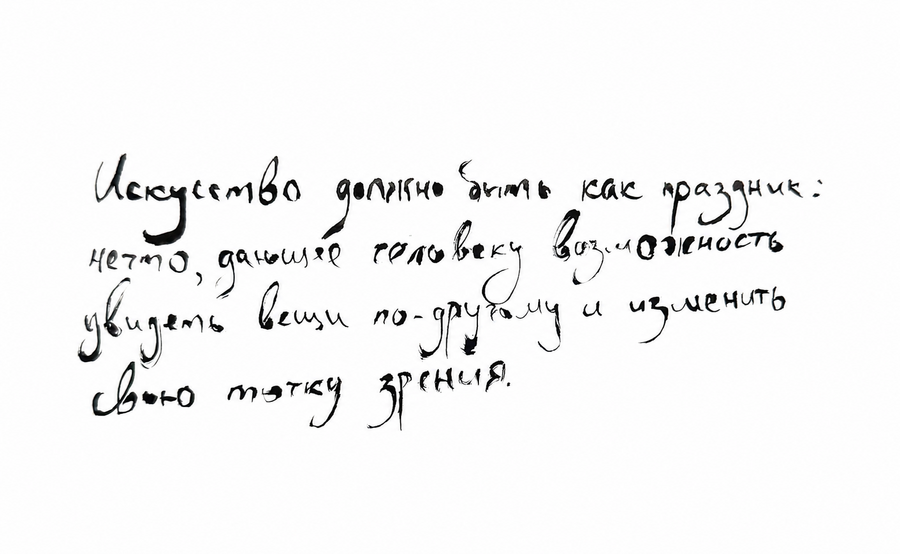 Искусство должно быть как праздник:
нечто, дающее человеку возможность
увидеть вещи по-другому и изменить
свою точку зрения.